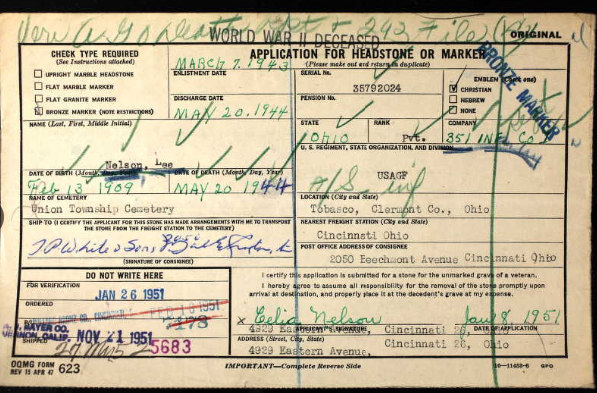 WORLD WAR II DECEASED
ORIGINAL
CHECK TYPE REQUIRED
(See Instructions attached)
UPRIGHT MARBLE HEADSTONE
FLAT MARBLE MARKER
FLAT GRANITE MARKER
BRONZE MARKER (NOTE RESTRICTIONS)
MARCH 7, 1943
ENLISTMENT DATE
DISCHARGE DATE
MAY 20, 1944
APPLICATION FOR HEADSTONE OR MARKER
(Please make out and return in duplicate)
SERIAL No.
35792024
PENSION No.
EMBLEM (Check one)
CHRISTIAN
HEBREW
NONE
BRONZE MARKER
STATE
OHIO
RANK
Pvt.
COMPANY
351 INF.
NAME (Last, First, Middle Initial)
Nelson, Lee
U. S. REGIMENT, STATE ORGANIZATION, AND DIVISION
USAGF
DATE OF BIRTH (Month, Day, Year)
Feb 13 1909
DATE OF DEATH (Month, Day, Year)
MAY 20 1944
NAME OF CEMETERY
Union Township Cemetery
LOCATION (City and State)
Tobasco, Clermont Co., Ohio
SHIP TO (I CERTIFY THE APPLICANT FOR THIS STONE HAS MADE ARRANGEMENTS WITH ME TO TRANSPORT
THE STONE FROM THE FREIGHT STATION TO THE CEMETERY)
NEAREST FREIGHT STATION (City and State)
Cincinnati Ohio
T P White & Sons
(SIGNATURE OF CONSIGNEE)
POST OFFICE ADDRESS OF CONSIGNEE
2050 Beechmont Avenue Cincinnati Ohio
DO NOT WRITE HERE
FOR VERIFICATION
JAN 26 1951
ORDERED
FEB 13 1951
NOV 21 1951
SHIPPED
5683
I certify this application is submitted for a stone for the unmarked grave of a veteran.
I hereby agree to assume all responsibility for the removal of the stone promptly
upon arrival at destination, and properly place it at the decedent's grave at my expense.
x Celia Nelson
Jan 8, 1951
APPLICANT'S SIGNATURE
DATE OF APPLICATION
4929 Eastern Avenue, Cincinnati 26, Ohio
ADDRESS (Street, City, State)
4929 Eastern Avenue, Cincinnati 26, Ohio
OQMG FORM
REV 15 APR 47
623
IMPORTANT—Complete Reverse Side
GPO